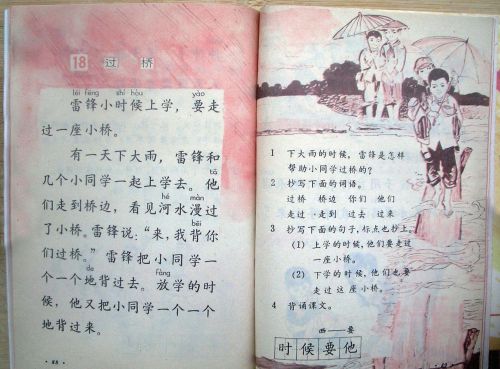 18 过桥
léi fēng shí hòu yào
雷锋小时候上学，要走
过一座小桥。
有一天下大雨，雷锋和
tā
几个小同学一起上学去。他
hé màn
们走到桥边，看见河水漫过
bēi
了小桥。雷锋说：“来，我背你
们过桥。”雷锋把小同学一
de fàng
个一个地背过去。放学的时
候，他又把小同学一个一个
地背过来。
·88·
1 下大雨的时候，雷锋是怎样
帮助小同学过桥的？
2 抄写下面的词语。
过桥 桥边 你们 他们
走过 走到 过去 过来
3 抄写下面的句子，标点也抄上。
(1) 上学的时候，他们要走过
一座小桥。
(2) 下学的时候，他们也要
走过这座小桥。
4 背诵课文。
西——要
时候要他